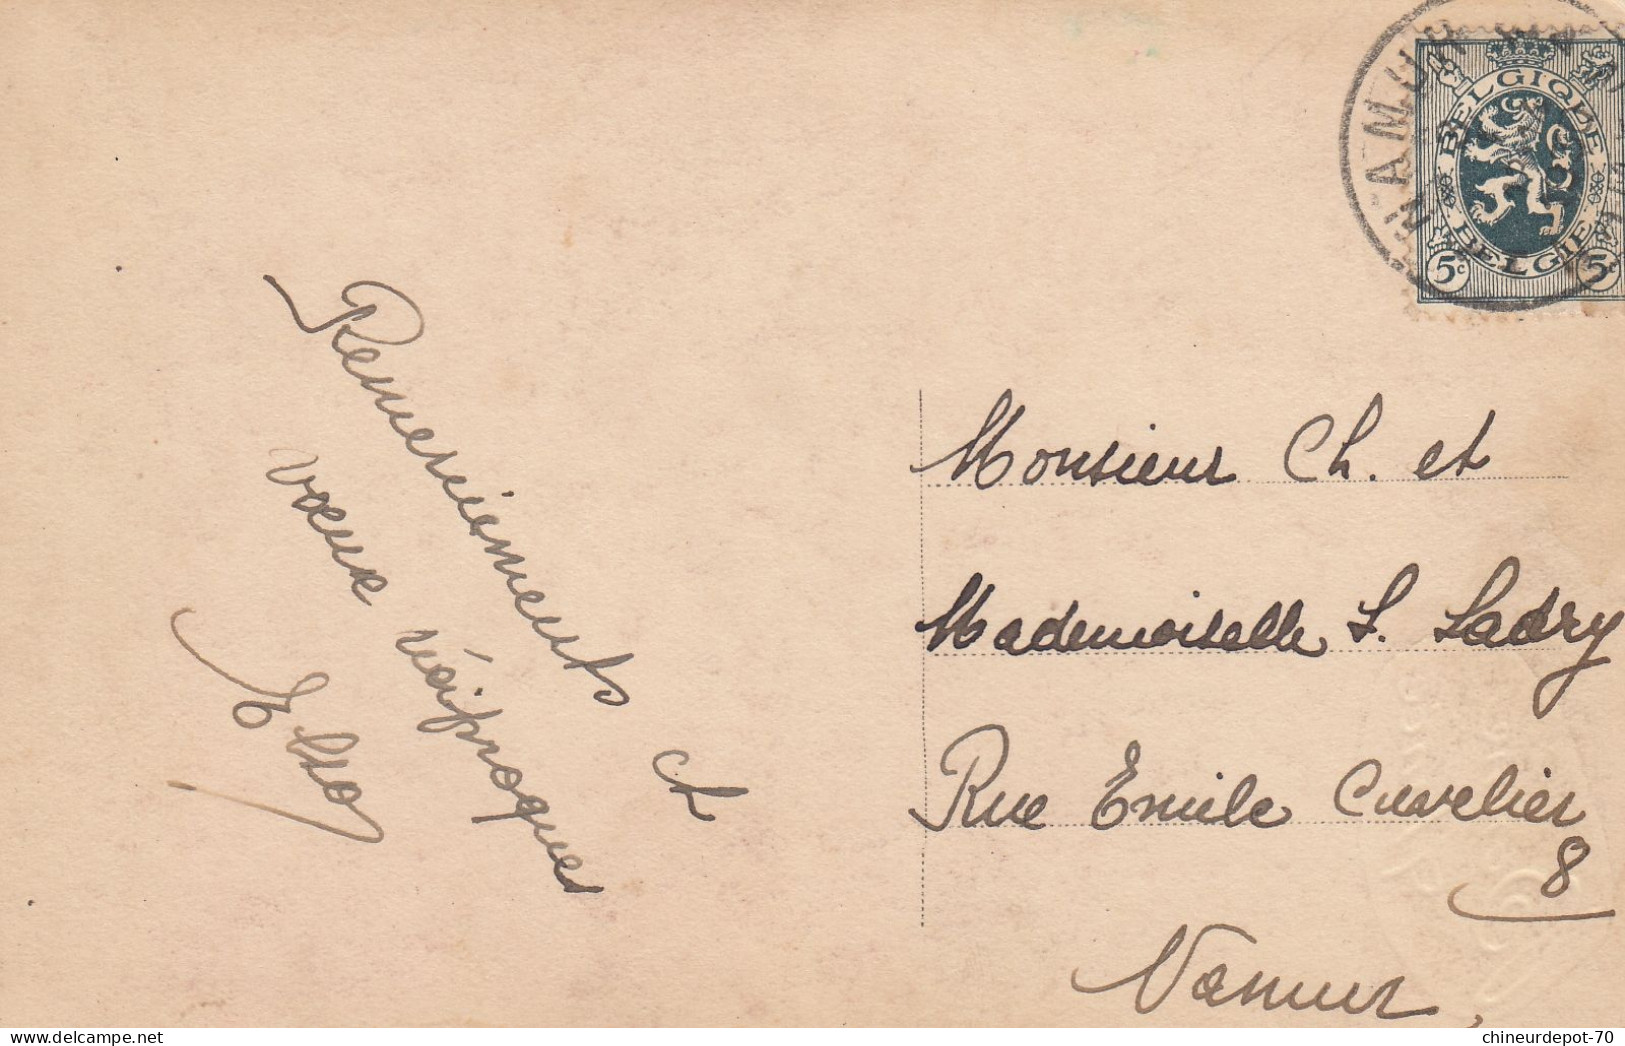 NAMUR
BELGIQUE
BELGIË
5c 5c
Remerciements et
vœux réciproques
Monsieur Ch. et
Mademoiselle S. Ladry
Rue Emile Cuvelier
8
Namur,
chineurdepot-70